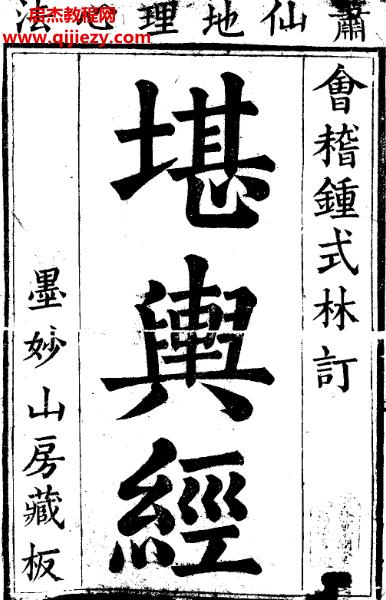 蕭仙地理法
启杰教程网
www.qijiezy.com
會稽鍾式林訂
堪輿經
墨妙山房藏板